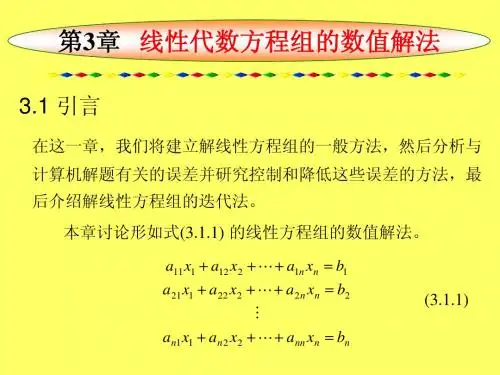 第3章 线性代数方程组的数值解法
3.1 引言
在这一章，我们将建立解线性方程组的一般方法，然后分析与
计算机解题有关的误差并研究控制和降低这些误差的方法，最
后介绍解线性方程组的迭代法。
本章讨论形如式(3.1.1) 的线性方程组的数值解法。
a₁₁x₁ + a₁₂x₂ + ⋯ + a₁ₙxₙ = b₁
a₂₁x₁ + a₂₂x₂ + ⋯ + a₂ₙxₙ = b₂
⋮
(3.1.1)
aₙ₁x₁ + aₙ₂x₂ + ⋯ + aₙₙxₙ = bₙ